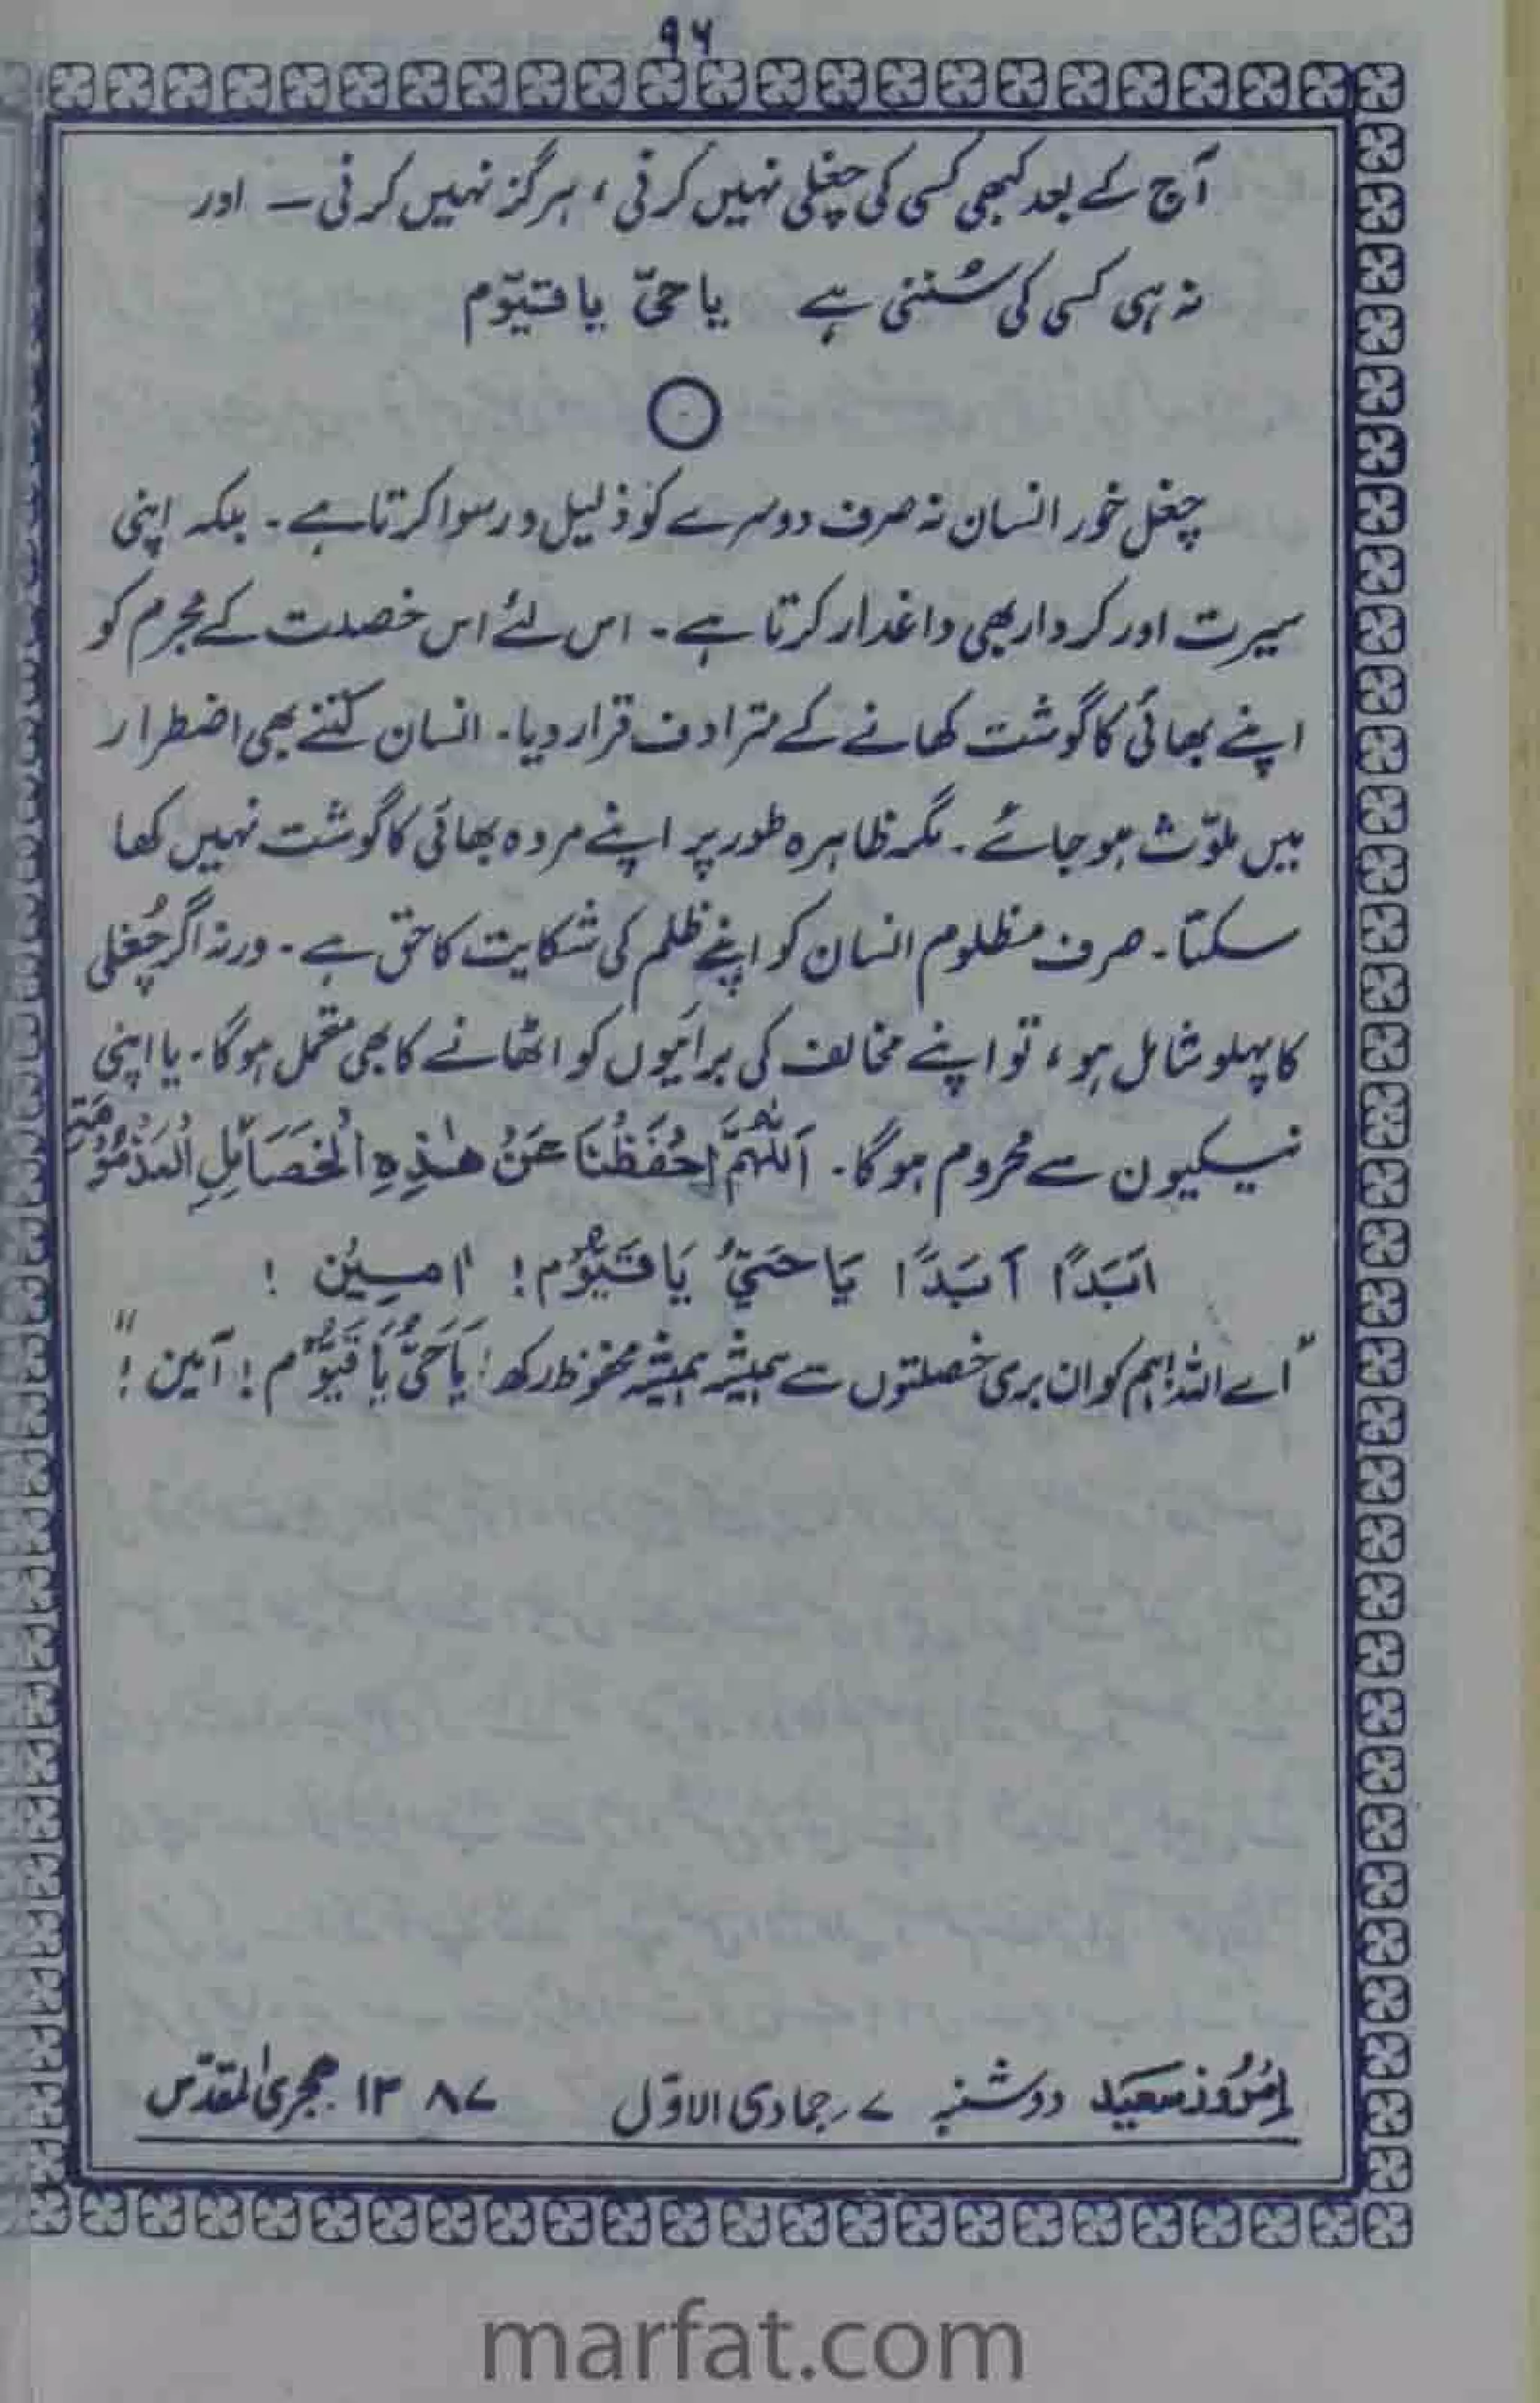 ۹۶
آج کے بعد کبھی کسی کی چغلی نہیں کرنی ، ہرگز نہیں کرنی ۔ اور
نہ ہی کسی کی سُننی ہے یا حیّ یا قیّوم
چغل خور انسان نہ صرف دوسرے کو ذلیل و رسوا کرتا ہے ۔ بلکہ اپنی
سیرت اور کردار بھی داغدار کرتا ہے ۔ اس لئے اس خصلت کے مجرم کو
اپنے بھائی کا گوشت کھانے کے مترادف قرار دیا ۔ انسان کتنے بھی اضطرار
میں ملوّث ہو جائے ۔ مگر ظاہرہ طور پر اپنے مردہ بھائی کا گوشت نہیں کھا
سکتا ۔ صرف مظلوم انسان کو اپنے ظلم کی شکایت کا حق ہے ۔ ورنہ اگر چُغلی
کا پہلو شامل ہو ، تو اپنے مخالف کی برائیوں کو اٹھانے کا بھی متحمل ہوگا ۔ یا اپنی
نیکیوں سے محروم ہوگا ۔ اَللّٰهُمَّ احْفَظْنَا عَنْ هٰذِهِ الْخَصَائِلِ الْمَذْمُوْمَةِ
اَبَدًا اَبَدًا يَا حَيُّ يَا قَيُّوْمُ ! اٰمِيْن !
"اے اللہ! ہم کو ان بری خصلتوں سے ہمیشہ ہمیشہ محفوظ رکھ ! یَا حَیُّ یَا قَیُّوْمُ ! آمین !"
اِمْرُوز سَعِید دوشنبہ ۷؍ جمادی الاوّل ۱۳۸۷ ہجری المقدّس
marfat.com